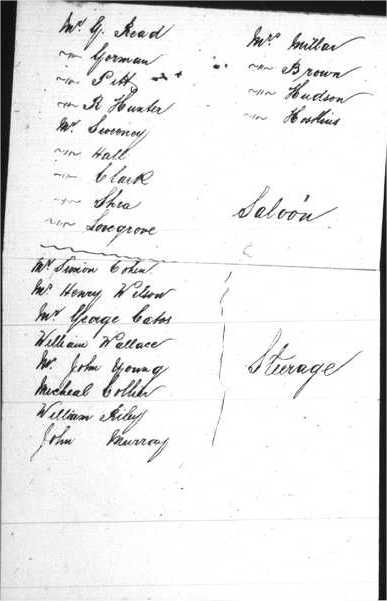 Mr G. Read
" Gorman
" Pitt
" R Hunter
Mr Sweeney
" Hall
" Clark
" Shea
" Lovegrove
Mrs Millar
" Brown
" Hudson
" Hoskins
Saloon
Mr Simion Cohen
Mr Henry Wilson
Mr George Cabos
William Wallace
Mr John Young
Micheal Collin
William Riley
John Murray
Steerage